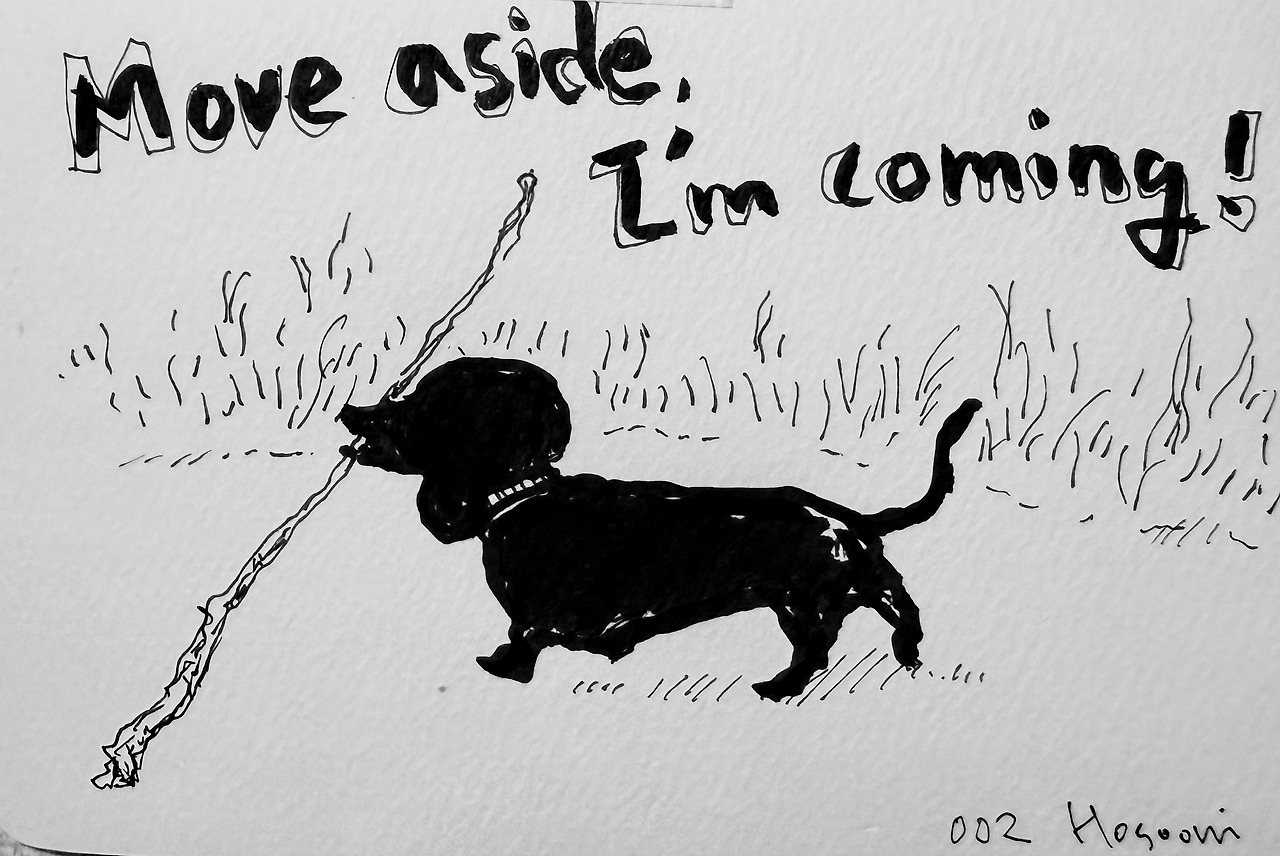 Move aside,
I'm coming!
002